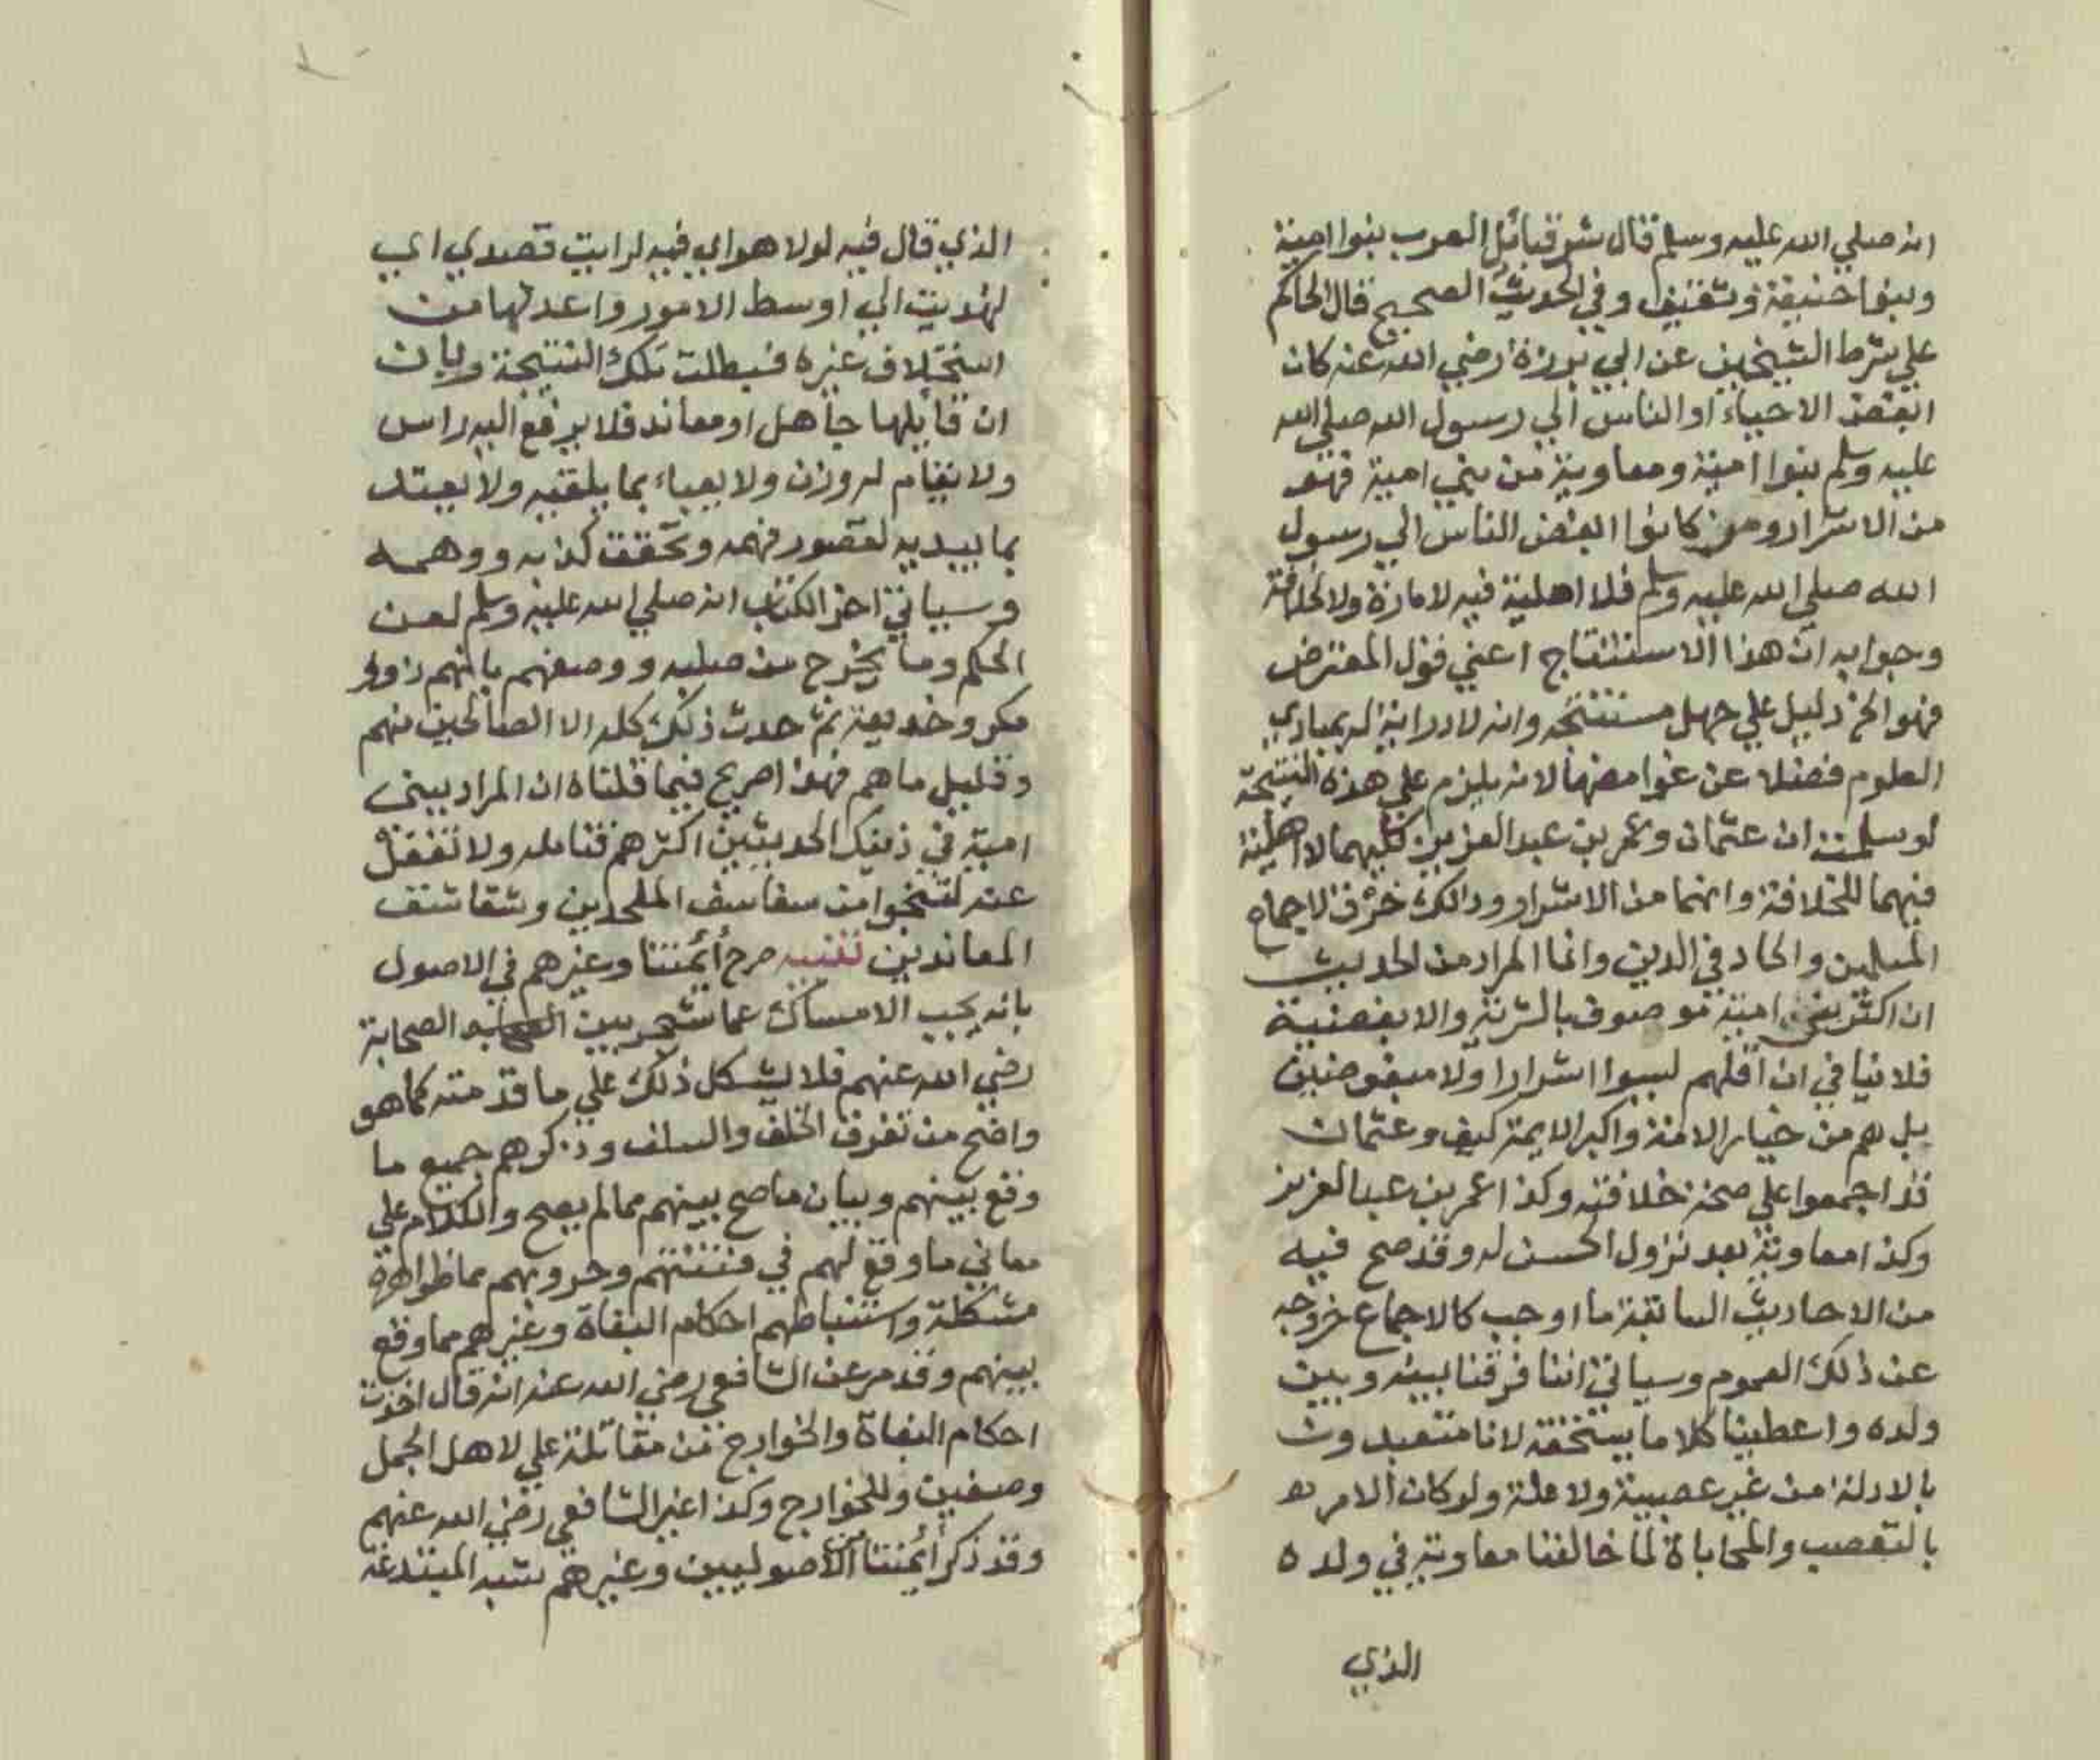 انه صلي الله عليه وسلم قال شر قبائل العرب بنوا امية
وبنوا حنيفة وثقيف وفي الحديث الصحيح قال الحاكم
علي شرط الشيخين عن ابي برزة رضي الله عنه كان
ابغض الاحياء او الناس الي رسول الله صلي الله
عليه وسلم بنوا امية ومعاوية من بني امية فهو
من الاشرار ومن كانوا ابغض الناس الي رسول
الله صلي الله عليه وسلم فلا اهلية فيه لامارة ولا لخلافة
وجوابه ان هذا الاستنتاج اعني قول المعترض
فهو الخ دليل علي جهل مستنتجه وانه لا دراية له بمبادي
العلوم فضلا عن غوامضها لانه يلزم علي هذه النتيجة
لو سلمت ان عثمان وعمر بن عبد العزيز كليهما لا اهلية
فيهما للخلافة وانهما من الاشرار وذالك خرق لاجماع
المسلمين والحاد في الدين وانما المراد من الحديث
ان اكثر بني امية موصوف بالشرية والابغضية
فلا ينافي ان اقلهم ليسوا اشرارا ولا مبغوضين
بل هم من خيار الامة واكبر الايمة كيف وعثمان
قد اجمعوا علي صحة خلافته وكذا عمر بن عبد العزيز
وكذا معاوية بعد نزول الحسن له وقد صح فيه
من الاحاديث السابقة ما اوجب كالاجماع خروجه
عن ذلك العموم وسياتي اننا فرقنا بينه وبين
ولده واعطينا كلا ما يستحقه لانا متعبدون
بالادلة من غير عصبية ولا علة ولو كان الامر
بالتعصب والمحاباة لما خالفنا معاوية في ولده
الذي
الذي قال فيه لولا هواي فيه لرايت قصدي اي
لهديت الي اوسط الامور واعدلها من
استخلاف غيره فبطلت تلك النتيجة وبان
ان قايلها جاهل او معاند فلا يرفع اليه راس
ولا يقام له وزن ولا يعباء بما يلقيه ولا يعتد
بما يبديه لقصور فهمه وتحقق كذبه ووهمه
وسياتي اخر الكتاب انه صلي الله عليه وسلم لعن
الحكم وما يخرج من صلبه ووصفهم بانهم ذووا
مكر وخديعة ثم حدث ذلك كله الا الصالحين منهم
وقليل ما هم فهذا صريح فيما قلناه ان المراد ببني
امية في ذينك الحديثين اكثرهم فتامله ولا تغفل
عنه لتنجوا من سفاسف الملحدين وشقاشق
المعاندين تنبيه صرح أئمتنا وغيرهم في الاصول
بانه يجب الامساك عما شجر بين الصحابة
رضي الله عنهم فلا يشكل ذلك علي ما قدمته كما هو
واضح من تفرق الخلف والسلف وذكرهم جميع ما
وقع بينهم وبيان ما صح بينهم مما لم يصح والكلام علي
معاني ما وقع لهم في فتنتهم وحروبهم مما ظواهره
مشكلة واستنباطهم احكام البغاة وغيرهم مما وقع
بينهم وقد مر عن الشافعي رضي الله عنه انه قال اخذت
احكام البغاة والخوارج من مقاتلة علي لاهل الجمل
وصفين وللخوارج وكذا غير الشافعي رضي الله عنهم
وقد ذكر أئمتنا من الاصوليين وغيرهم شبه المبتدعة